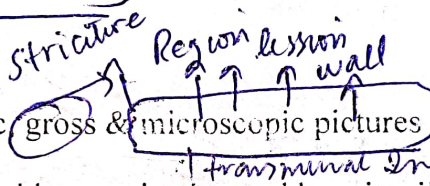 stricture Region lession wall
c gross & microscopic pictures
transmural In